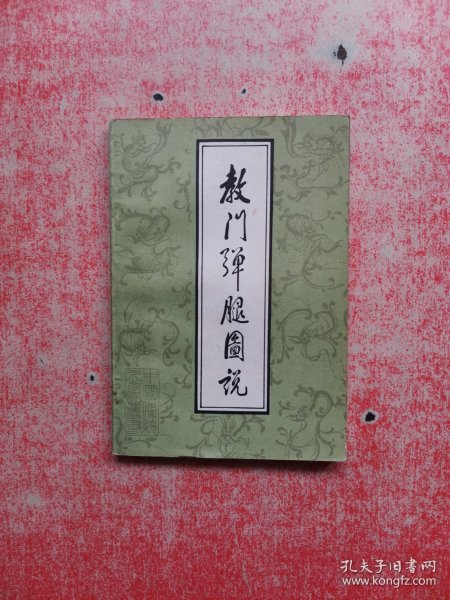 教门弹腿圖说
孔夫子旧书网
www.kongfz.com